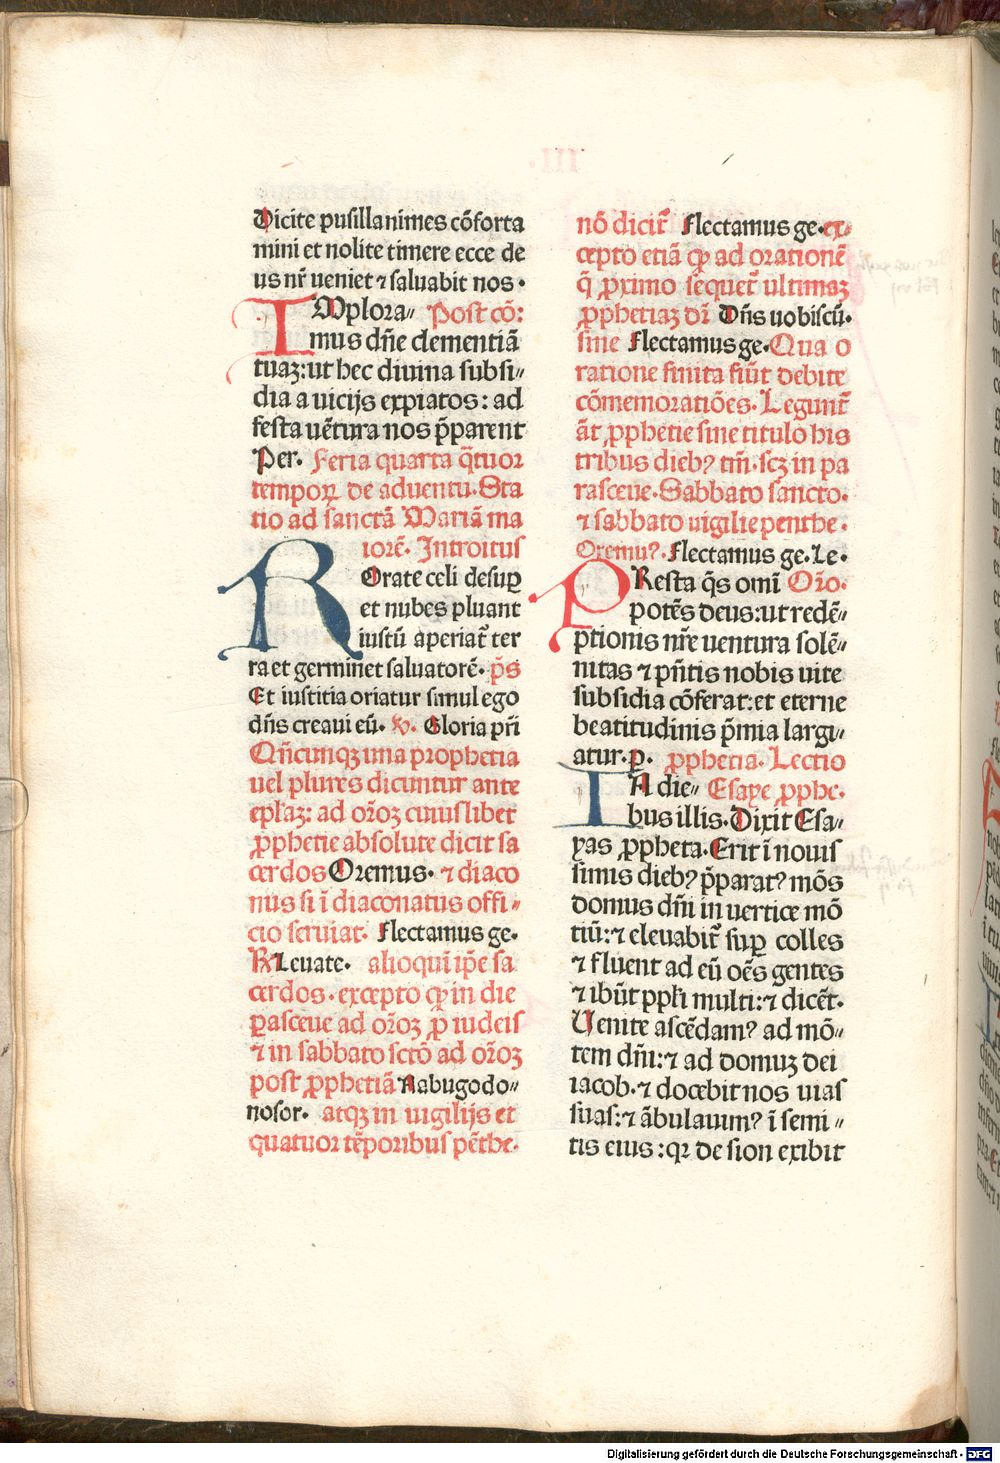 Dicite pusillanimes cõforta
mini et nolite timere ecce de
us nr̃ ueniet ⁊ saluabit nos·
IMplora„ Post cõ:
mus dñe clementiã
tuaʒ:ut hec diuina subsi„
dia a uicijs expiatos: ad
festa uẽtura nos p̃parent
Per. Feria quarta q̃tuor
tempoꝝ de aduentu. Sta
tio ad sanctã Mariã ma
iorẽ. Introitus
ROrate celi desuꝑ
et nubes pluant
iustũ aperiat᷑ ter
ra et germinet saluatorẽ. p̃s
Et iustitia oriatur simul ego
dñs creaui eũ. ℣. Gloria pr̃i
Qñcunqʒ una prophetia
uel plures dicuntur ante
ep̃laʒ: ad or̃oʒ cuiuslibet
ꝓphetie absolute dicit sa
cerdos Oremus. ⁊ diaco
nus si ĩ diaconatus offi„
cio seruiat. Flectamus ge.
℞ Leuate. alioqui ip̃e sa
cerdos. excepto ꝙ in die
ꝑasceue ad or̃oʒ ꝓ iudeis
⁊ in sabbato sctõ ad or̃oʒ
post ꝓphetiã Nabugodo„
nosor. atqʒ in uigilijs et
quatuor tẽporibus pẽthe.
nõ dicit᷑ Flectamus ge. ex„
cepto etiã ꝙ ad orationẽ
q̃ ꝓximo sequet᷑ ultimaʒ
ꝓphetiaʒ dr̃ Dñs uobiscũ.
sine Flectamus ge. Qua o
ratione finita fiũt debite
cõmemoratiões. Legunt᷑
ãt ꝓphetie sine titulo his
tribus dieb᷒ tm̃. scʒ in pa
rasceue. Sabbato sancto.
⁊ sabbato uigilie penthe.
Oremu᷒. Flectamus ge. Le.
PResta q̃s omĩ Or̃o.
potẽs deus:ut redẽ„
ptionis nr̃e uentura solẽ„
nitas ⁊ pñtis nobis uite
subsidia cõferat:et eterne
beatitudinis p̃mia largi„
atur. ꝑ. ꝓphetia. Lectio
IN die„ Esaye ꝓphe.
bus illis. Dixit Esa„
yas ꝓpheta. Erit ĩ nouis
simis dieb᷒ p̃parat᷒ mõs
domus dñi in uertice mõ
tiũ:⁊ eleuabit᷑ suꝑ colles
⁊ fluent ad eũ oẽs gentes
⁊ ibũt ppl̃i multi:⁊ dicẽt.
Uenite ascẽdam᷒ ad mõ„
tem dñi:⁊ ad domuʒ dei
iacob. ⁊ docebit nos uias
suas:⁊ ãbulauim᷒ ĩ semi„
tis eius:qꝛ de sion exibit
Digitalisierung gefördert durch die Deutsche Forschungsgemeinschaft - DFG